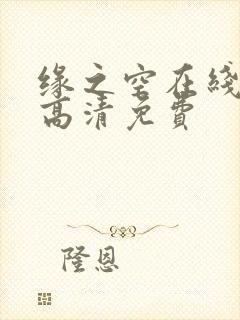 缘之空在线
高清免費
隆恩